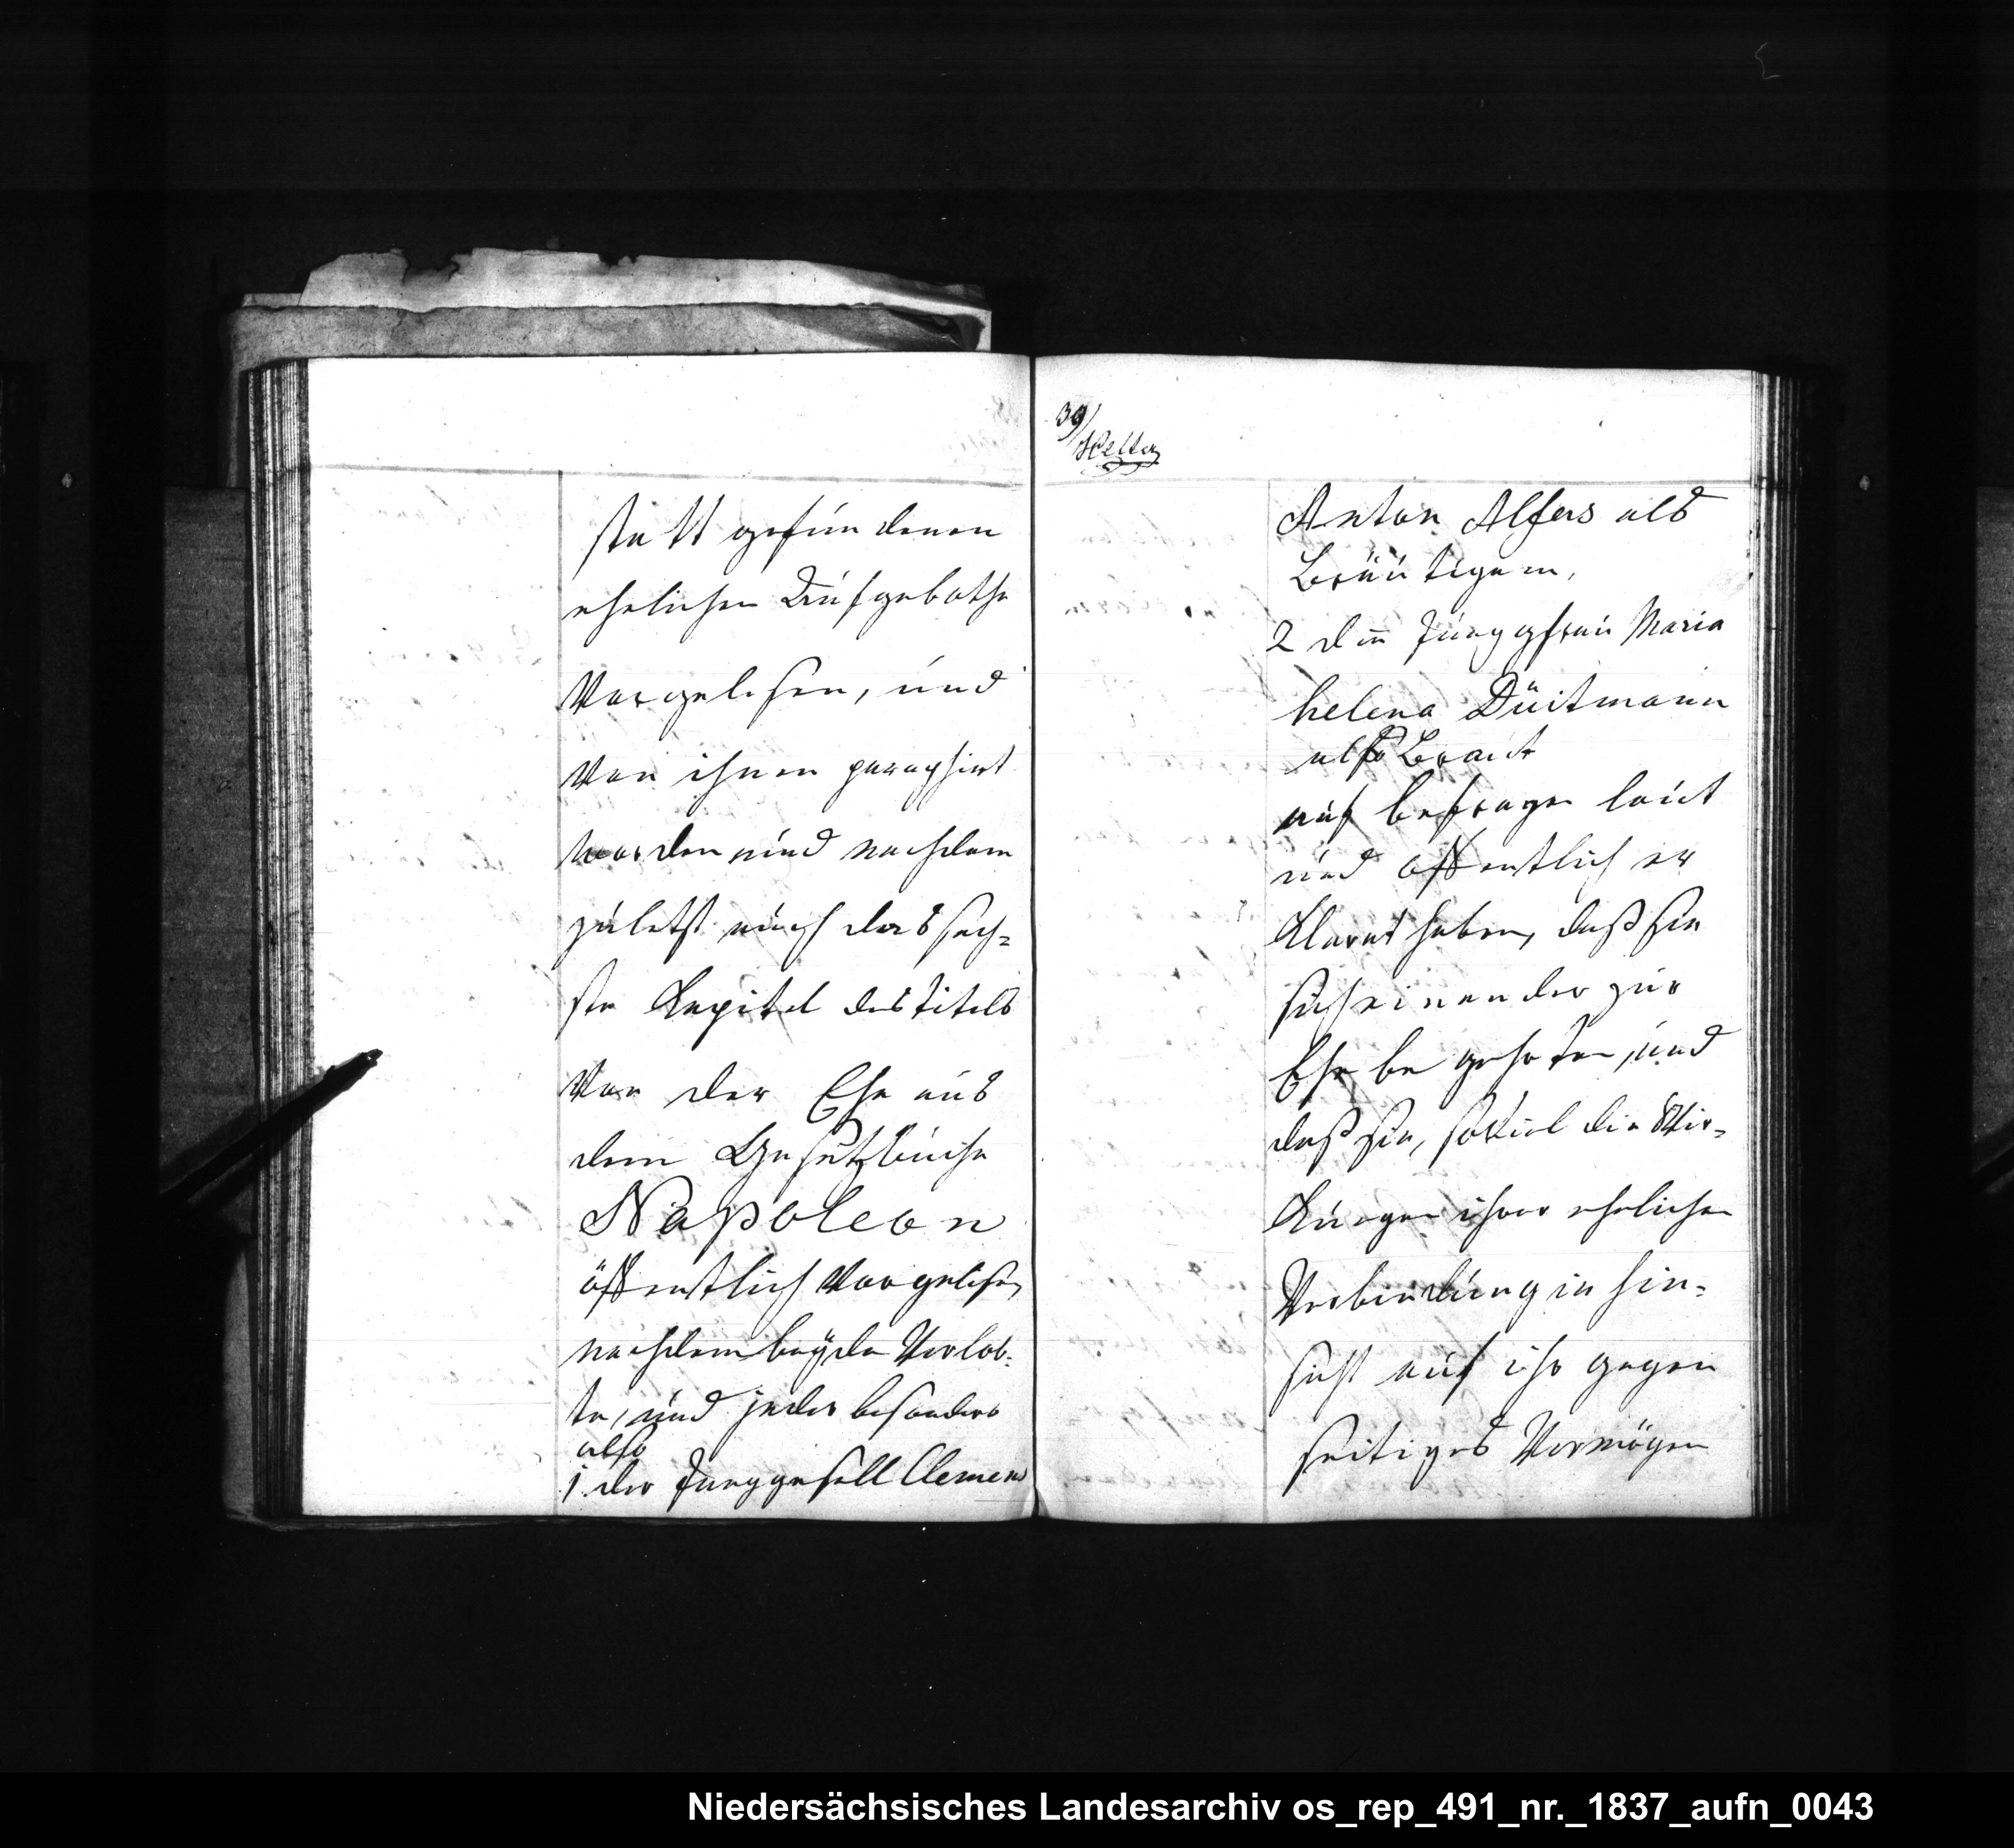 statt gefundenen
ehelichen Aufgebothe
Vorgelesen, und
Von ihnen paraphirt
worden und nachdem
zuletzt auch das sech=
ste Kapitel des titels
Von der Ehe aus
dem Gesetzbuche
Napoleon
öffentlich Vorgelesen
nachdem beÿde Verlob=
te, und jeder besonders
also
1 der Junggesell Clemens
39/
Anton Alfers als
Bräutigam,
2 die Jungfrau Maria
helena Düitmann
als Braut
auf befragen laut
und öffentlich er
klaret haben, daß sie
sich einander zur
Ehe be gehrten, und
daß sie, soViel die Wir=
kungen ihrer ehelichen
Verbindung in hin=
sicht auf ihr gegen
seitiges Vermögen
Niedersächsisches Landesarchiv os_rep_491_nr._1837_aufn_0043